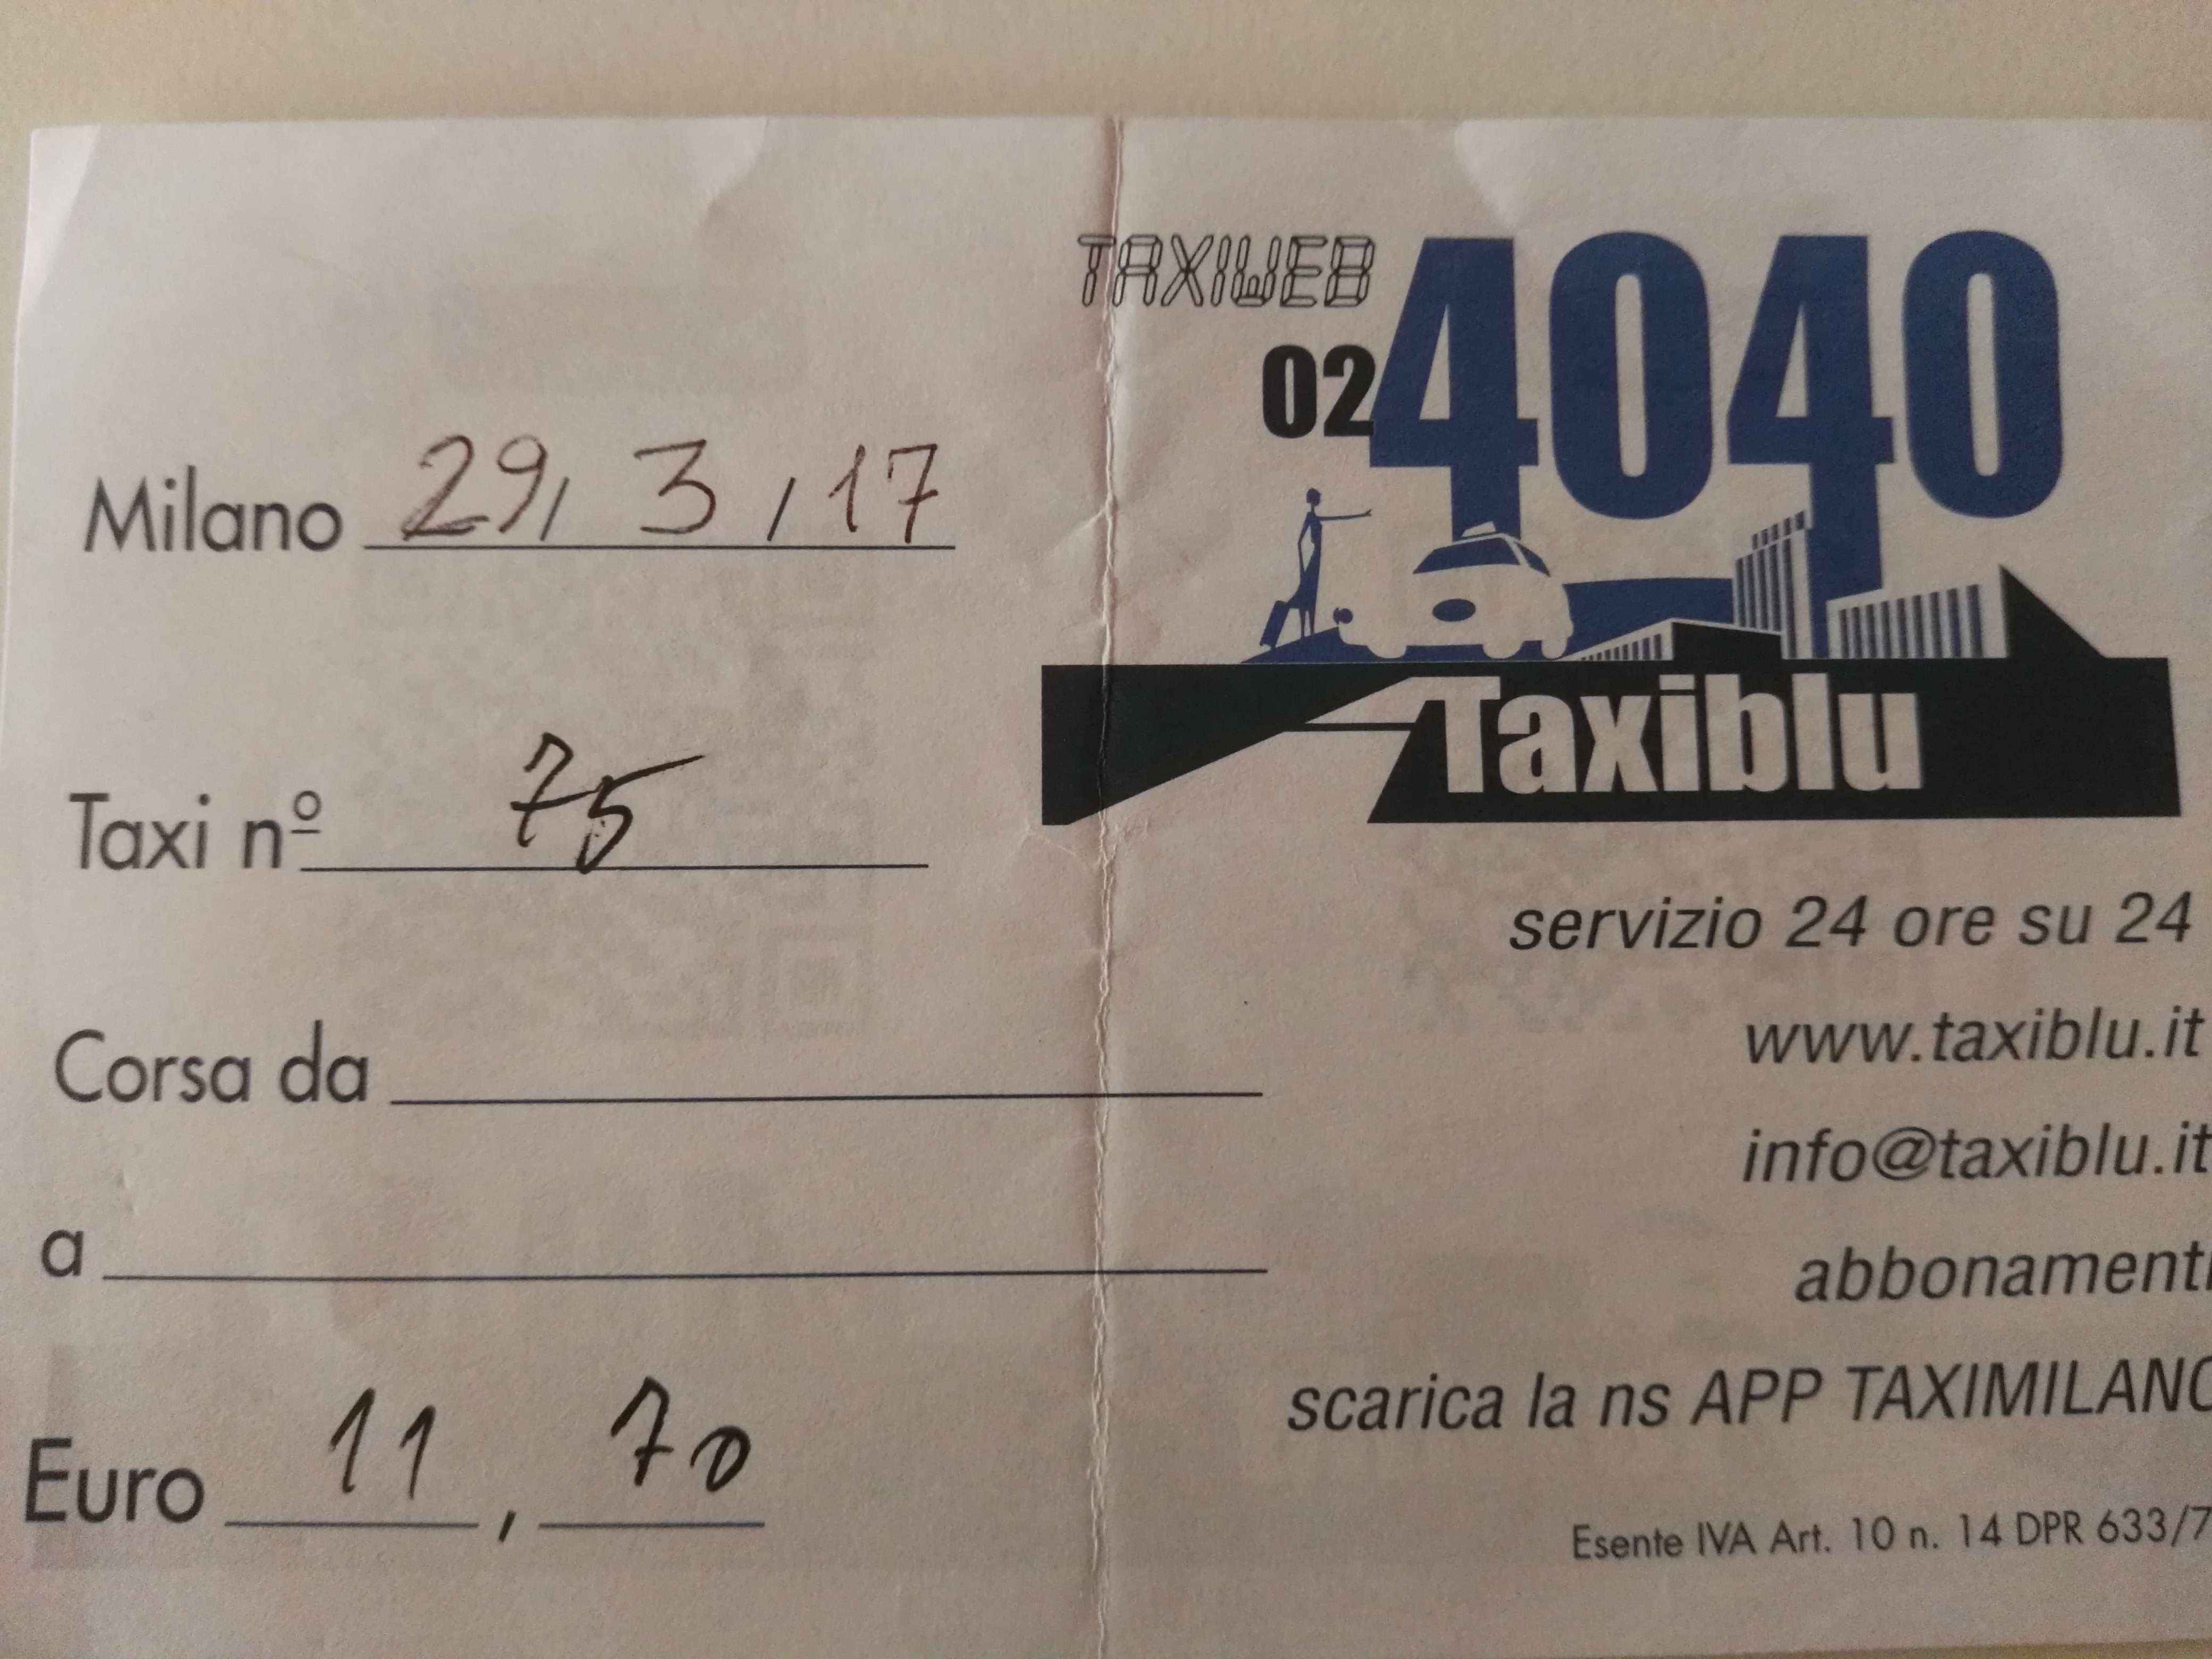 Milano 29, 3, 17
Taxi nº 75
Corsa da
a
Euro 11, 70
TAXIWEB
024040
Taxiblu
servizio 24 ore su 24
www.taxiblu.it
info@taxiblu.it
abbonamenti
scarica la ns APP TAXIMILANO
Esente IVA Art. 10 n. 14 DPR 633/7